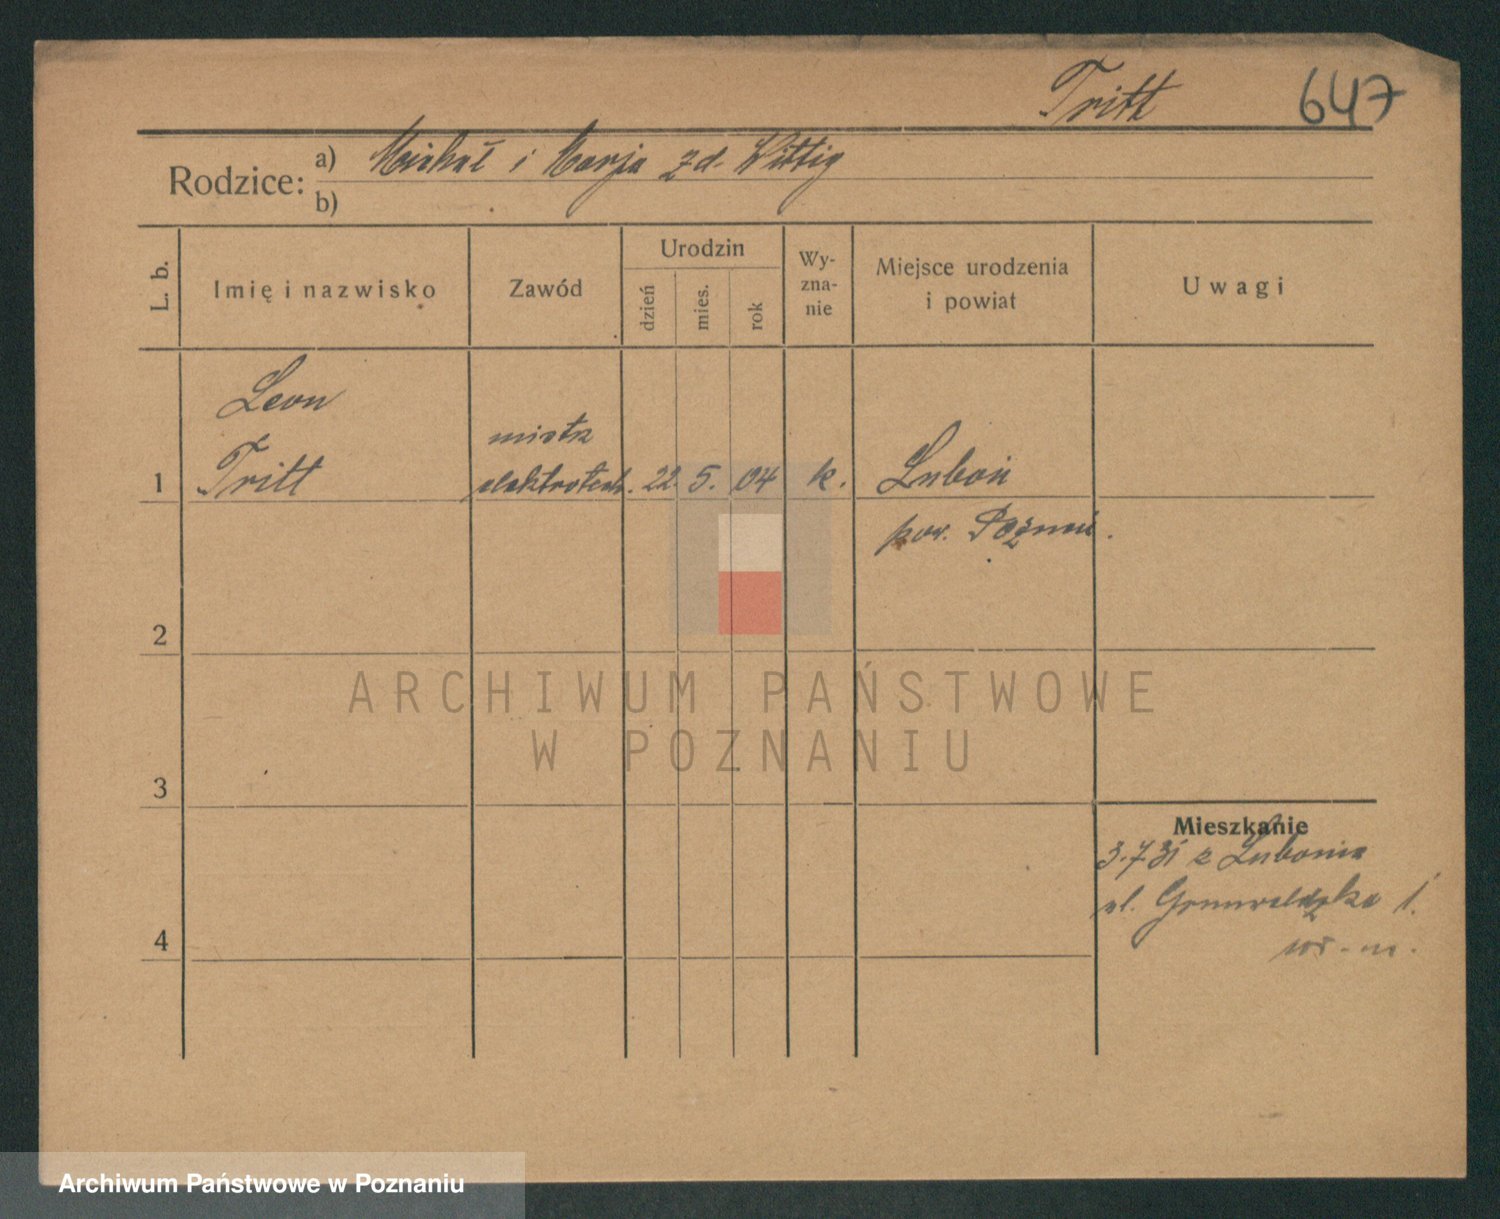 Tritt 647
Rodzice: a) Michał i Marja zd. Wittig
b)
L. b. Imię i nazwisko Zawód Urodzin dzień mies. rok Wy-zna-nie Miejsce urodzenia i powiat Uwagi
Leon
mistrz
1 Tritt elektrotech. 22. 5. 04 k. Luboń
pow. Poznań.
2
ARCHIWUM PAŃSTWOWE
W POZNANIU
3
Mieszkanie
3.7.31 z Lubonia
ul. Grunwaldzka 1.
4
Archiwum Państwowe w Poznaniu